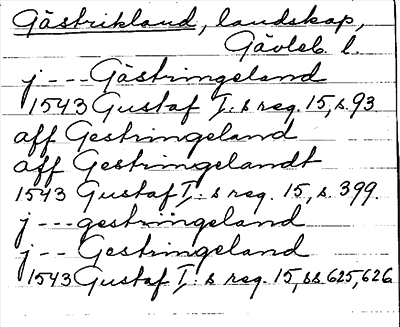 Gästrikland, landskap,
Gävleb. l.
j --- Gästringeland
1543 Gustaf I:s reg. 15, s. 93
aff Gestringeland
aff Gestringelandt
1543 Gustaf I:s reg. 15, s. 399.
j --- gestringeland
j -- Gestringeland
1543 Gustaf I:s reg. 15, ss 625, 626.